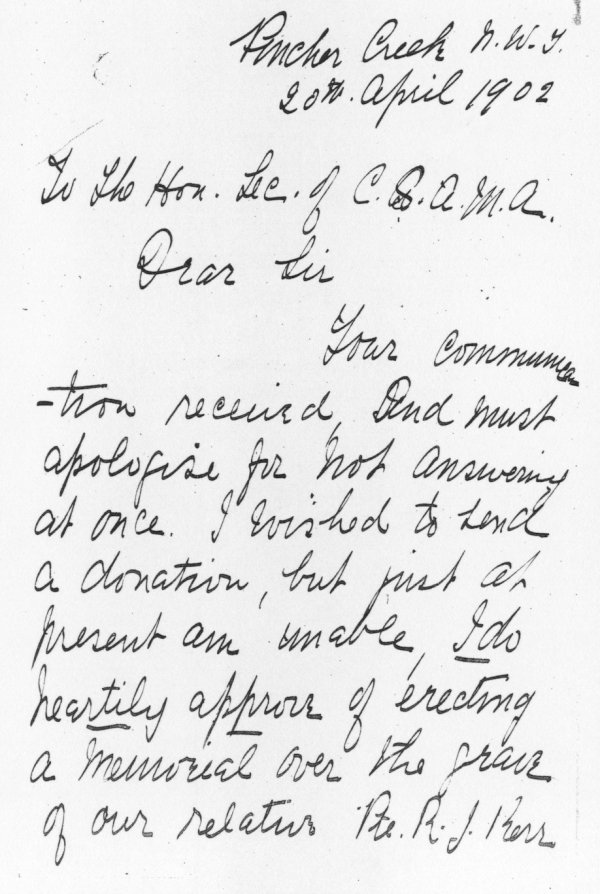 Pincher Creek N.W.T.
20th. April 1902
To the Hon. Sec. of C.S.A.M.A.
Dear Sir
Your communica
-tion received, And must
apologise for not answering
at once. I wished to send
a donation, but just at
present am unable, I do
heartily approve of erecting
a memorial over the grave
of our relative Pte. R. J. Kerr